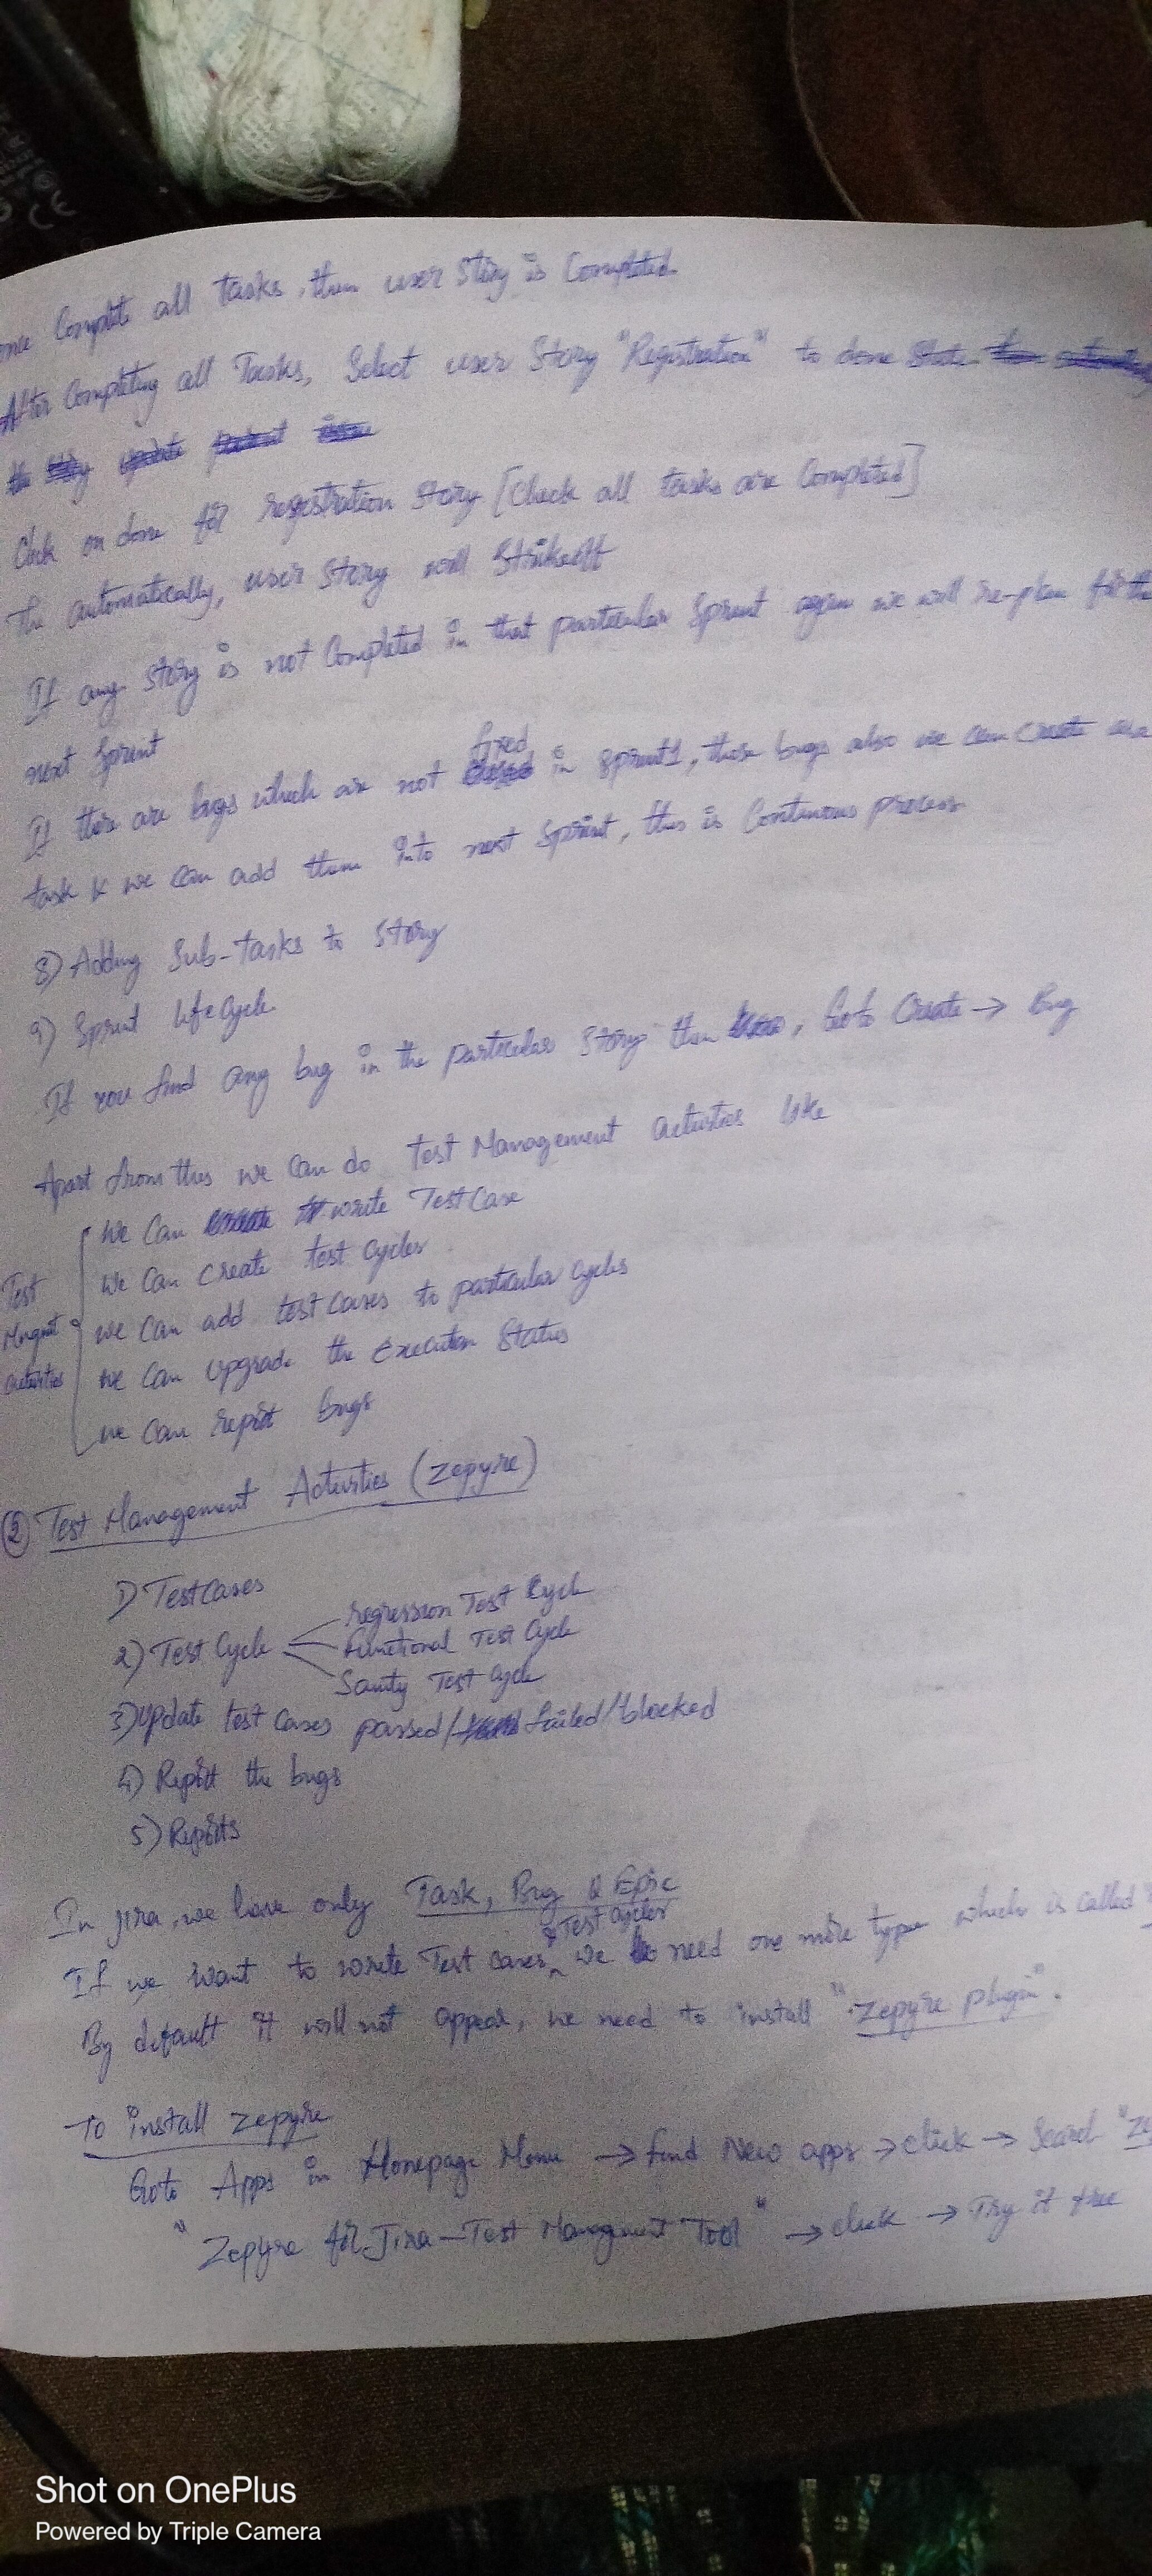 Complete all tasks, then user Story is Completed
After Completing all Tasks, Select user Story "Registration" to done State
Click on done for registration Story [Check all tasks are Completed]
The automatically, user Story will Strikeoff
If any Story is not Completed in that particular Sprint again we will re-plan for the
next Sprint
If there are bugs which are not fixed in Sprint1, those bugs also we can create as a
task & we can add them into next Sprint, this is Continuous process
8) Adding Sub-Tasks to Story
9) Sprint Life Cycle
If you find any bug in the particular Story then, Goto Create → Bug
Apart from this we can do Test Management activities like
we can write TestCase
we can create test cycles
Test
we can add test cases to particular cycles
Mngmt
we can upgrade the Execution Status
activities
we can report bugs
② Test Management Activities (Zepyre)
1) TestCases
regression Test Cycle
2) Test Cycle
Functional Test Cycle
Sanity Test Cycle
3) Update test cases passed/failed/blocked
4) Report the bugs
5) Reports
In Jira, we have only Task, Bug & Epic
& Test Cycles
If we want to write Test cases we need one more type which is called
By default it will not appear, we need to install "Zepyre plugin".
To install Zepyre
Goto Apps in Homepage Menu → find New apps → click → Search
"Zepyre for Jira - Test Managment Tool" → click → Try it free
Shot on OnePlus
Powered by Triple Camera